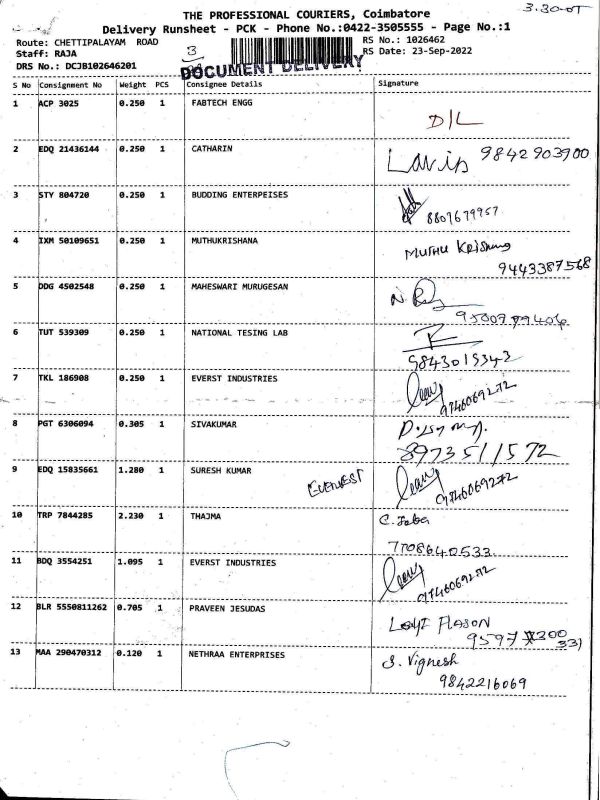 3.30-
THE PROFESSIONAL COURIERS, Coimbatore
Delivery Runsheet - PCK - Phone No.:0422-3505555 - Page No.:1
Route: CHETTIPALAYAM ROAD 3 RS No.: 1026462
Staff: RAJA RS Date: 23-Sep-2022
DRS No.: DCJB102646201 DOCUMENT DELIVERY
S No Consignment No Weight PCS Consignee Details Signature
1 ACP 3025 0.250 1 FABTECH ENGG D/L
2 EDQ 21436144 0.250 1 CATHARIN 9842903900
3 STY 804720 0.250 1 BUDDING ENTERPEISES 8807679957
4 IXM 50109651 0.250 1 MUTHUKRISHANA MUTHU
9443387568
5 DDG 4502548 0.250 1 MAHESWARI MURUGESAN
6 TUT 539309 0.250 1 NATIONAL TESING LAB
9843019343
7 TKL 186908 0.250 1 EVERST INDUSTRIES 9746069272
8 PGT 6306094 0.305 1 SIVAKUMAR
8973511572
9 EDQ 15835661 1.280 1 SURESH KUMAR 9746069272
10 TRP 7844285 2.230 1 THAJMA
7708640533
11 BDQ 3554251 1.095 1 EVERST INDUSTRIES 9746069272
12 BLR 5550811262 0.705 1 PRAVEEN JESUDAS
9597 200
331
13 MAA 290470312 0.120 1 NETHRAA ENTERPRISES S. Vignesh
9842216069